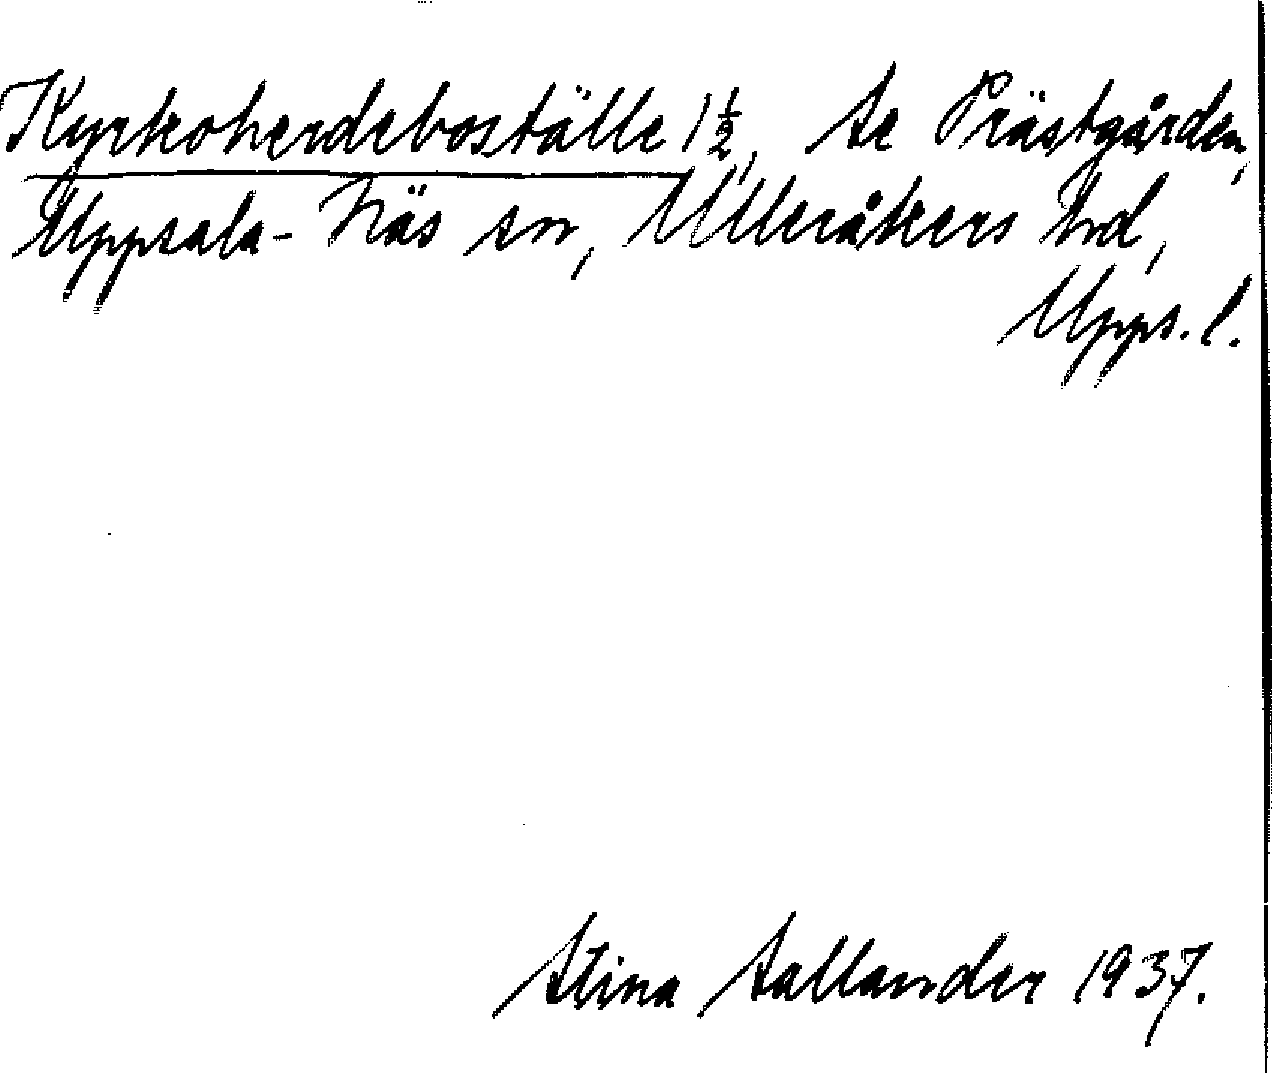 Kyrkoherdeboställe 1 1/2, se Prästgården,
Uppsala-Näs sn, Ulleråkers hd,
Upps. l.
Stina Sallander 1937.